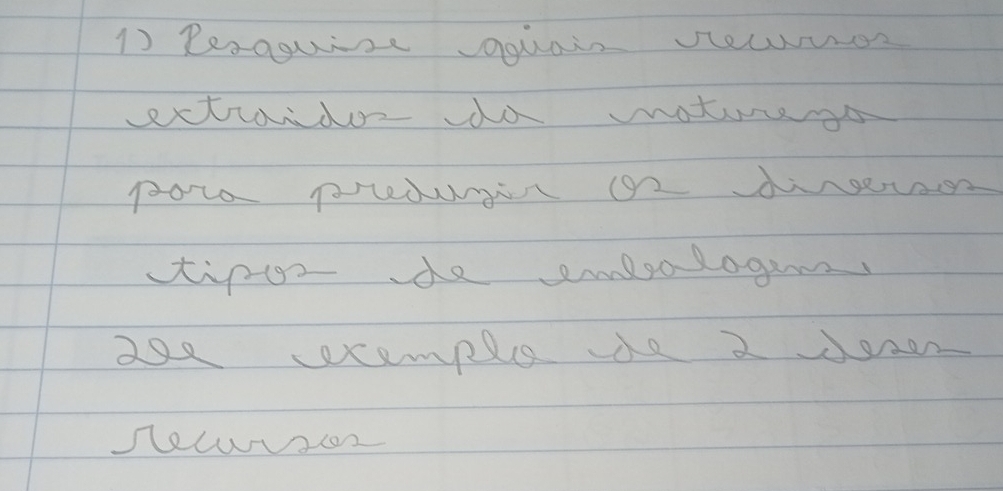 1) Pesquise quais recursos
extraidos da natureza
para produzir os diversos
tipos de embalagens.
Dê exemplo de 2 deses
recursos